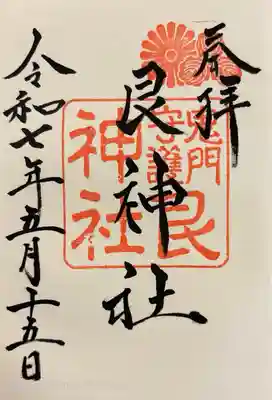 奉拝
艮神社
令和七年五月十五日
鬼門
守護
艮
神社